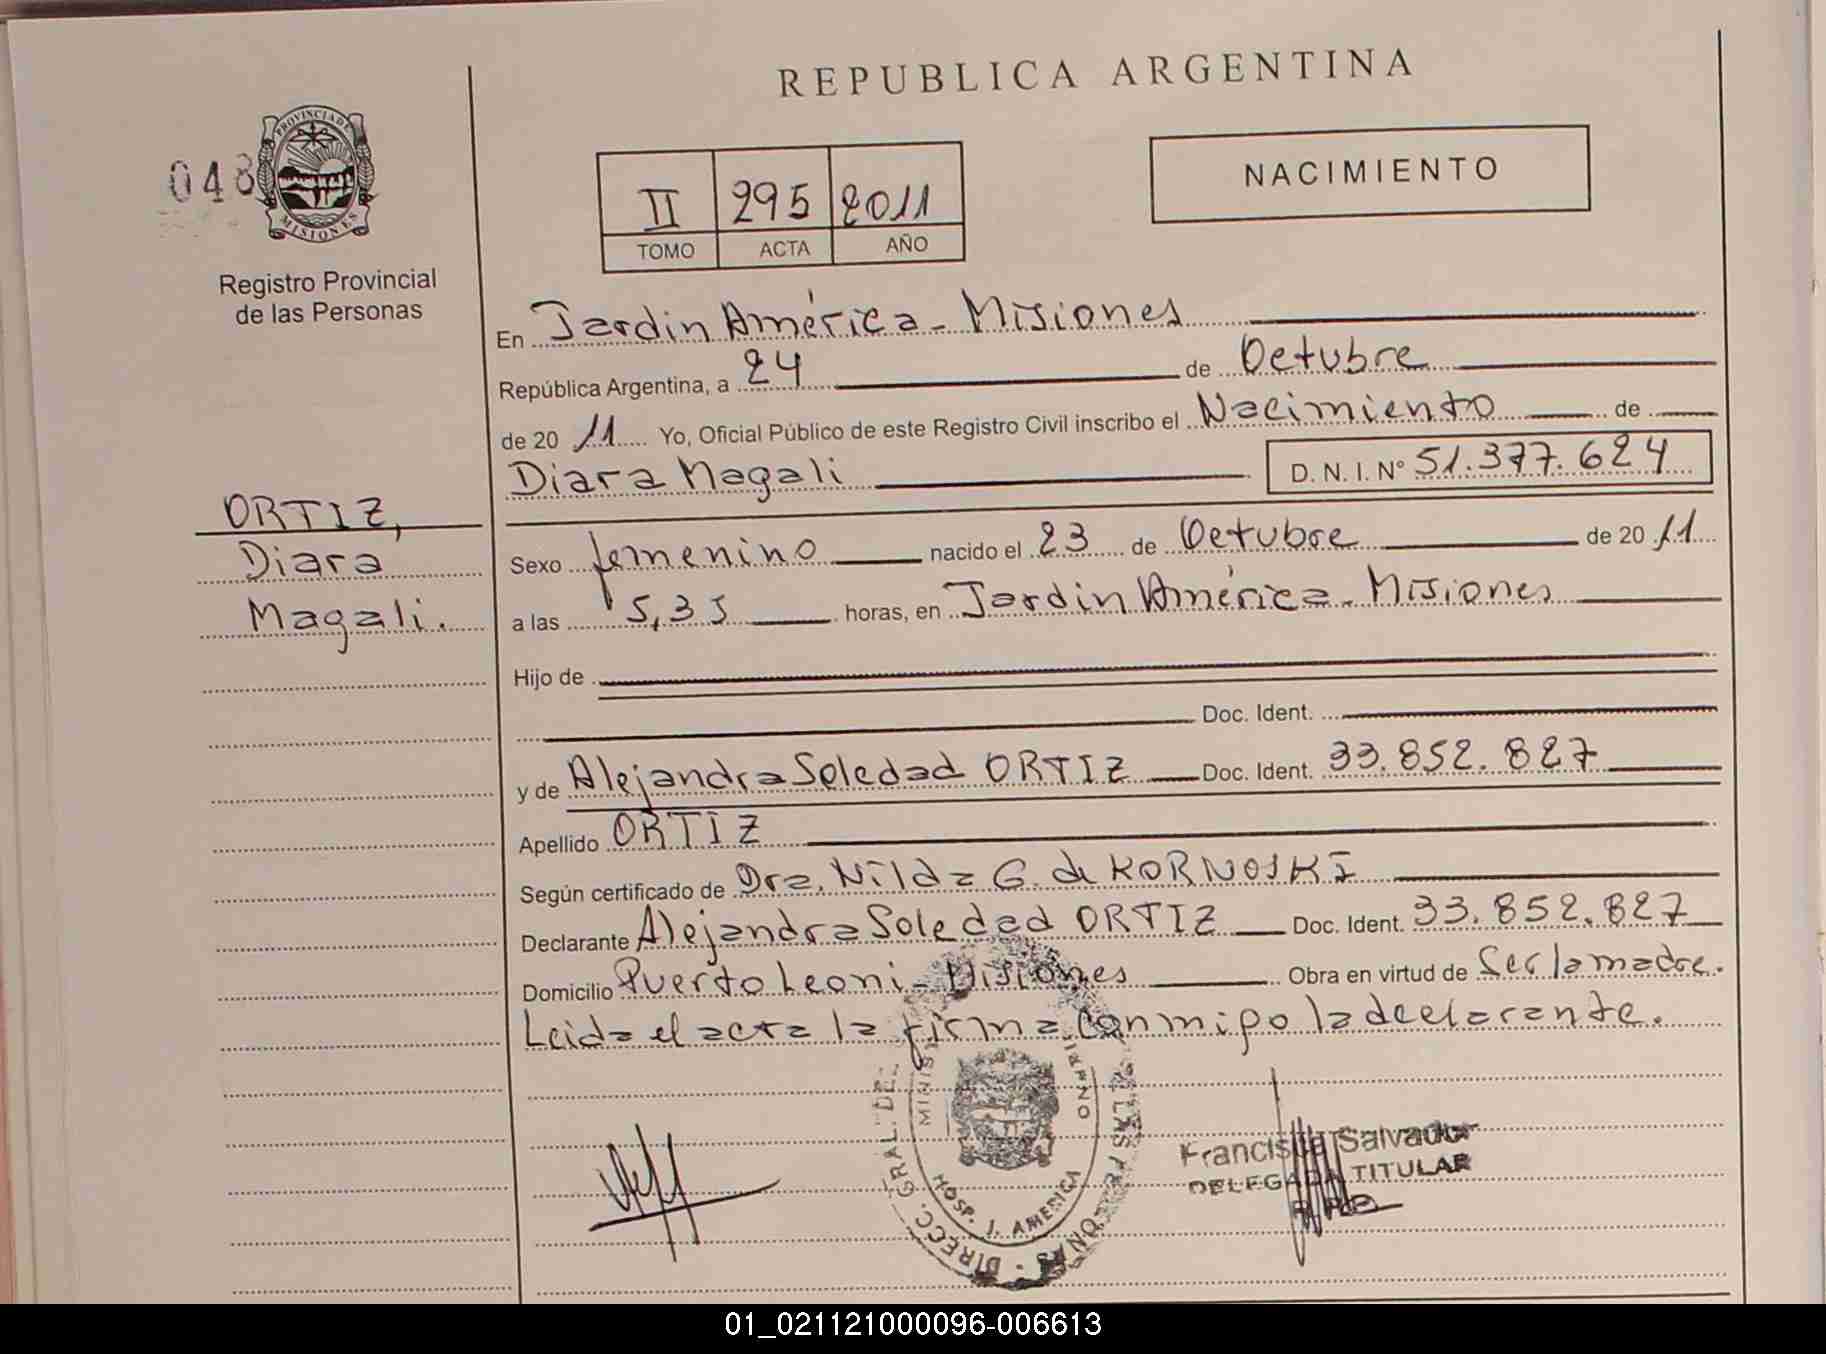 REPUBLICA ARGENTINA
048
PROVINCIA DE
MISIONES
Registro Provincial
de las Personas
II 295 2011
TOMO ACTA AÑO
NACIMIENTO
En Jardin América - Misiones
República Argentina, a 24 de Octubre
de 20 11 Yo, Oficial Público de este Registro Civil inscribo el Nacimiento de
Diara Magali D. N. I. N° 51.377.624
ORTIZ,
Diara
Magali.
Sexo femenino nacido el 23 de Octubre de 20 11
a las 5,35 horas, en Jardin América - Misiones
Hijo de
Doc. Ident.
y de Alejandra Soledad ORTIZ Doc. Ident. 33.852.827
Apellido ORTIZ
Según certificado de Dra. Nilda G. de KORNOSKI
Declarante Alejandra Soledad ORTIZ Doc. Ident. 33.852.827
Domicilio Puerto Leoni - Misiones Obra en virtud de Ser la madre.
Leida el acta la firma con migo la declarante.
DIRECC. GRAL. DE LAS
HOSP. J. AMERICA
Salvador
DELEGADA TITULAR
01_021121000096-006613